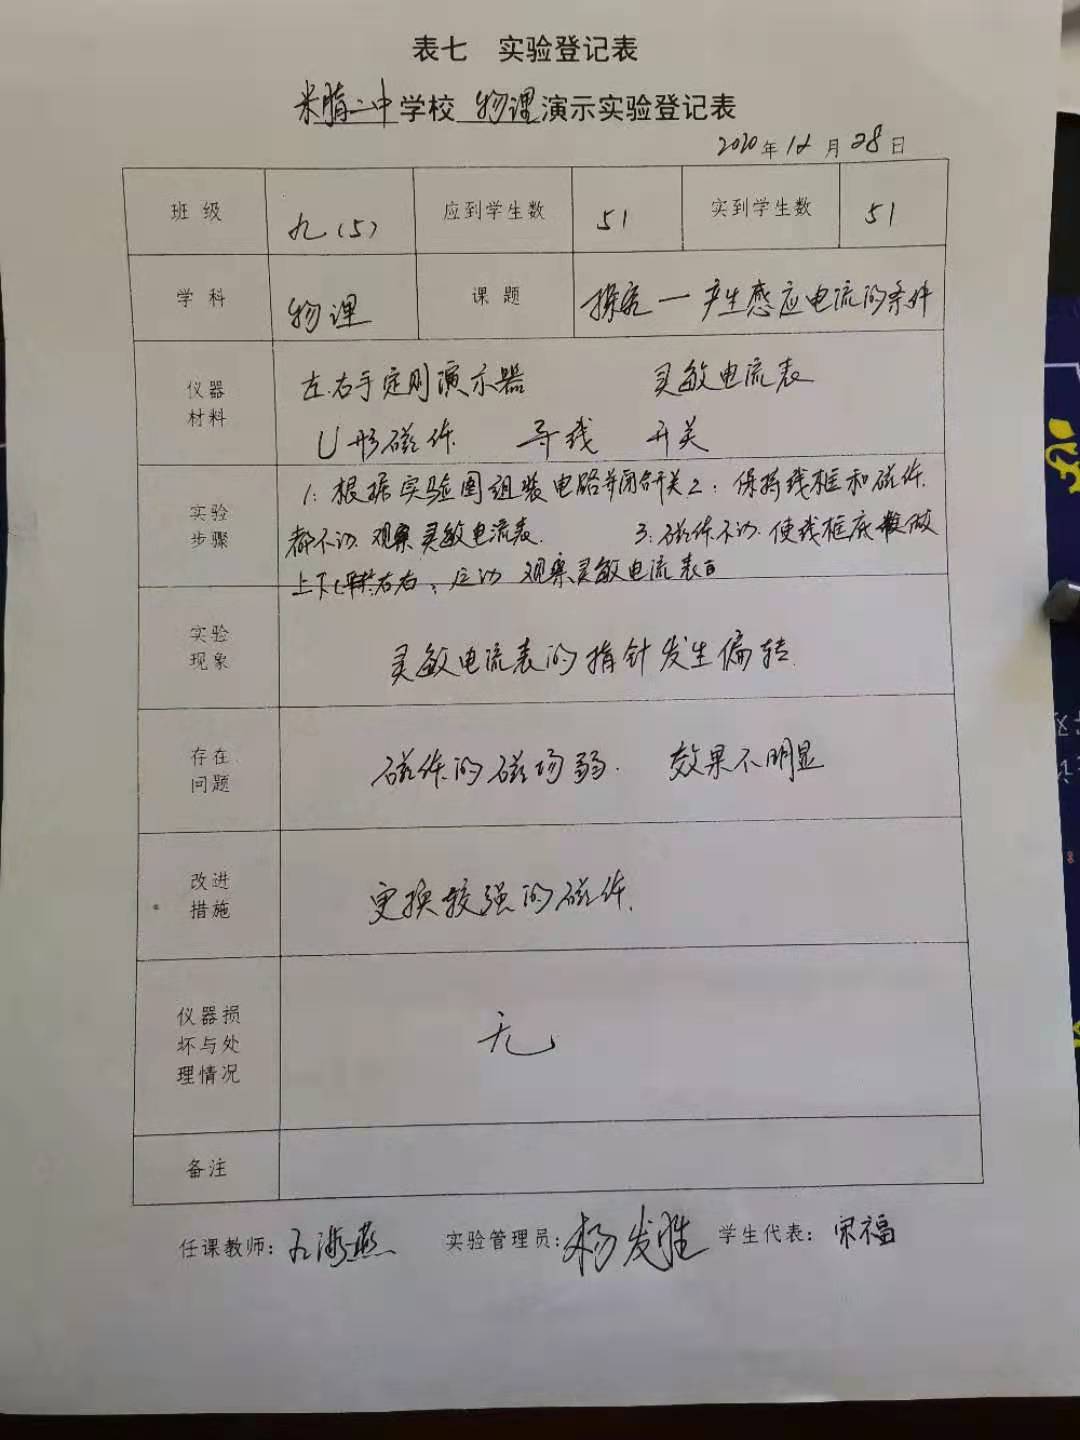 表七 实验登记表
米脂二中学校 物理演示实验登记表
2020年12月28日
班级 九(5) 应到学生数 51 实到学生数 51
学科 物理 课题 探究一产生感应电流的条件
仪器 左.右手定则演示器 灵敏电流表
材料 U形磁体. 导线 开关
1: 根据实验图组装电路并闭合开关 2: 保持线框和磁体.
实验
步骤 都不动. 观察灵敏电流表. 3: 磁体不动. 使线框底
上下 左右 运动 观察灵敏电流表
实验
现象 灵敏电流表的指针发生偏转.
存在
问题 磁体的磁场弱. 效果不明显
改进
措施 更换较强的磁体.
仪器损
坏与处 无
理情况
备注
任课教师: 海燕 实验管理员: 杨发胜 学生代表: 宋福